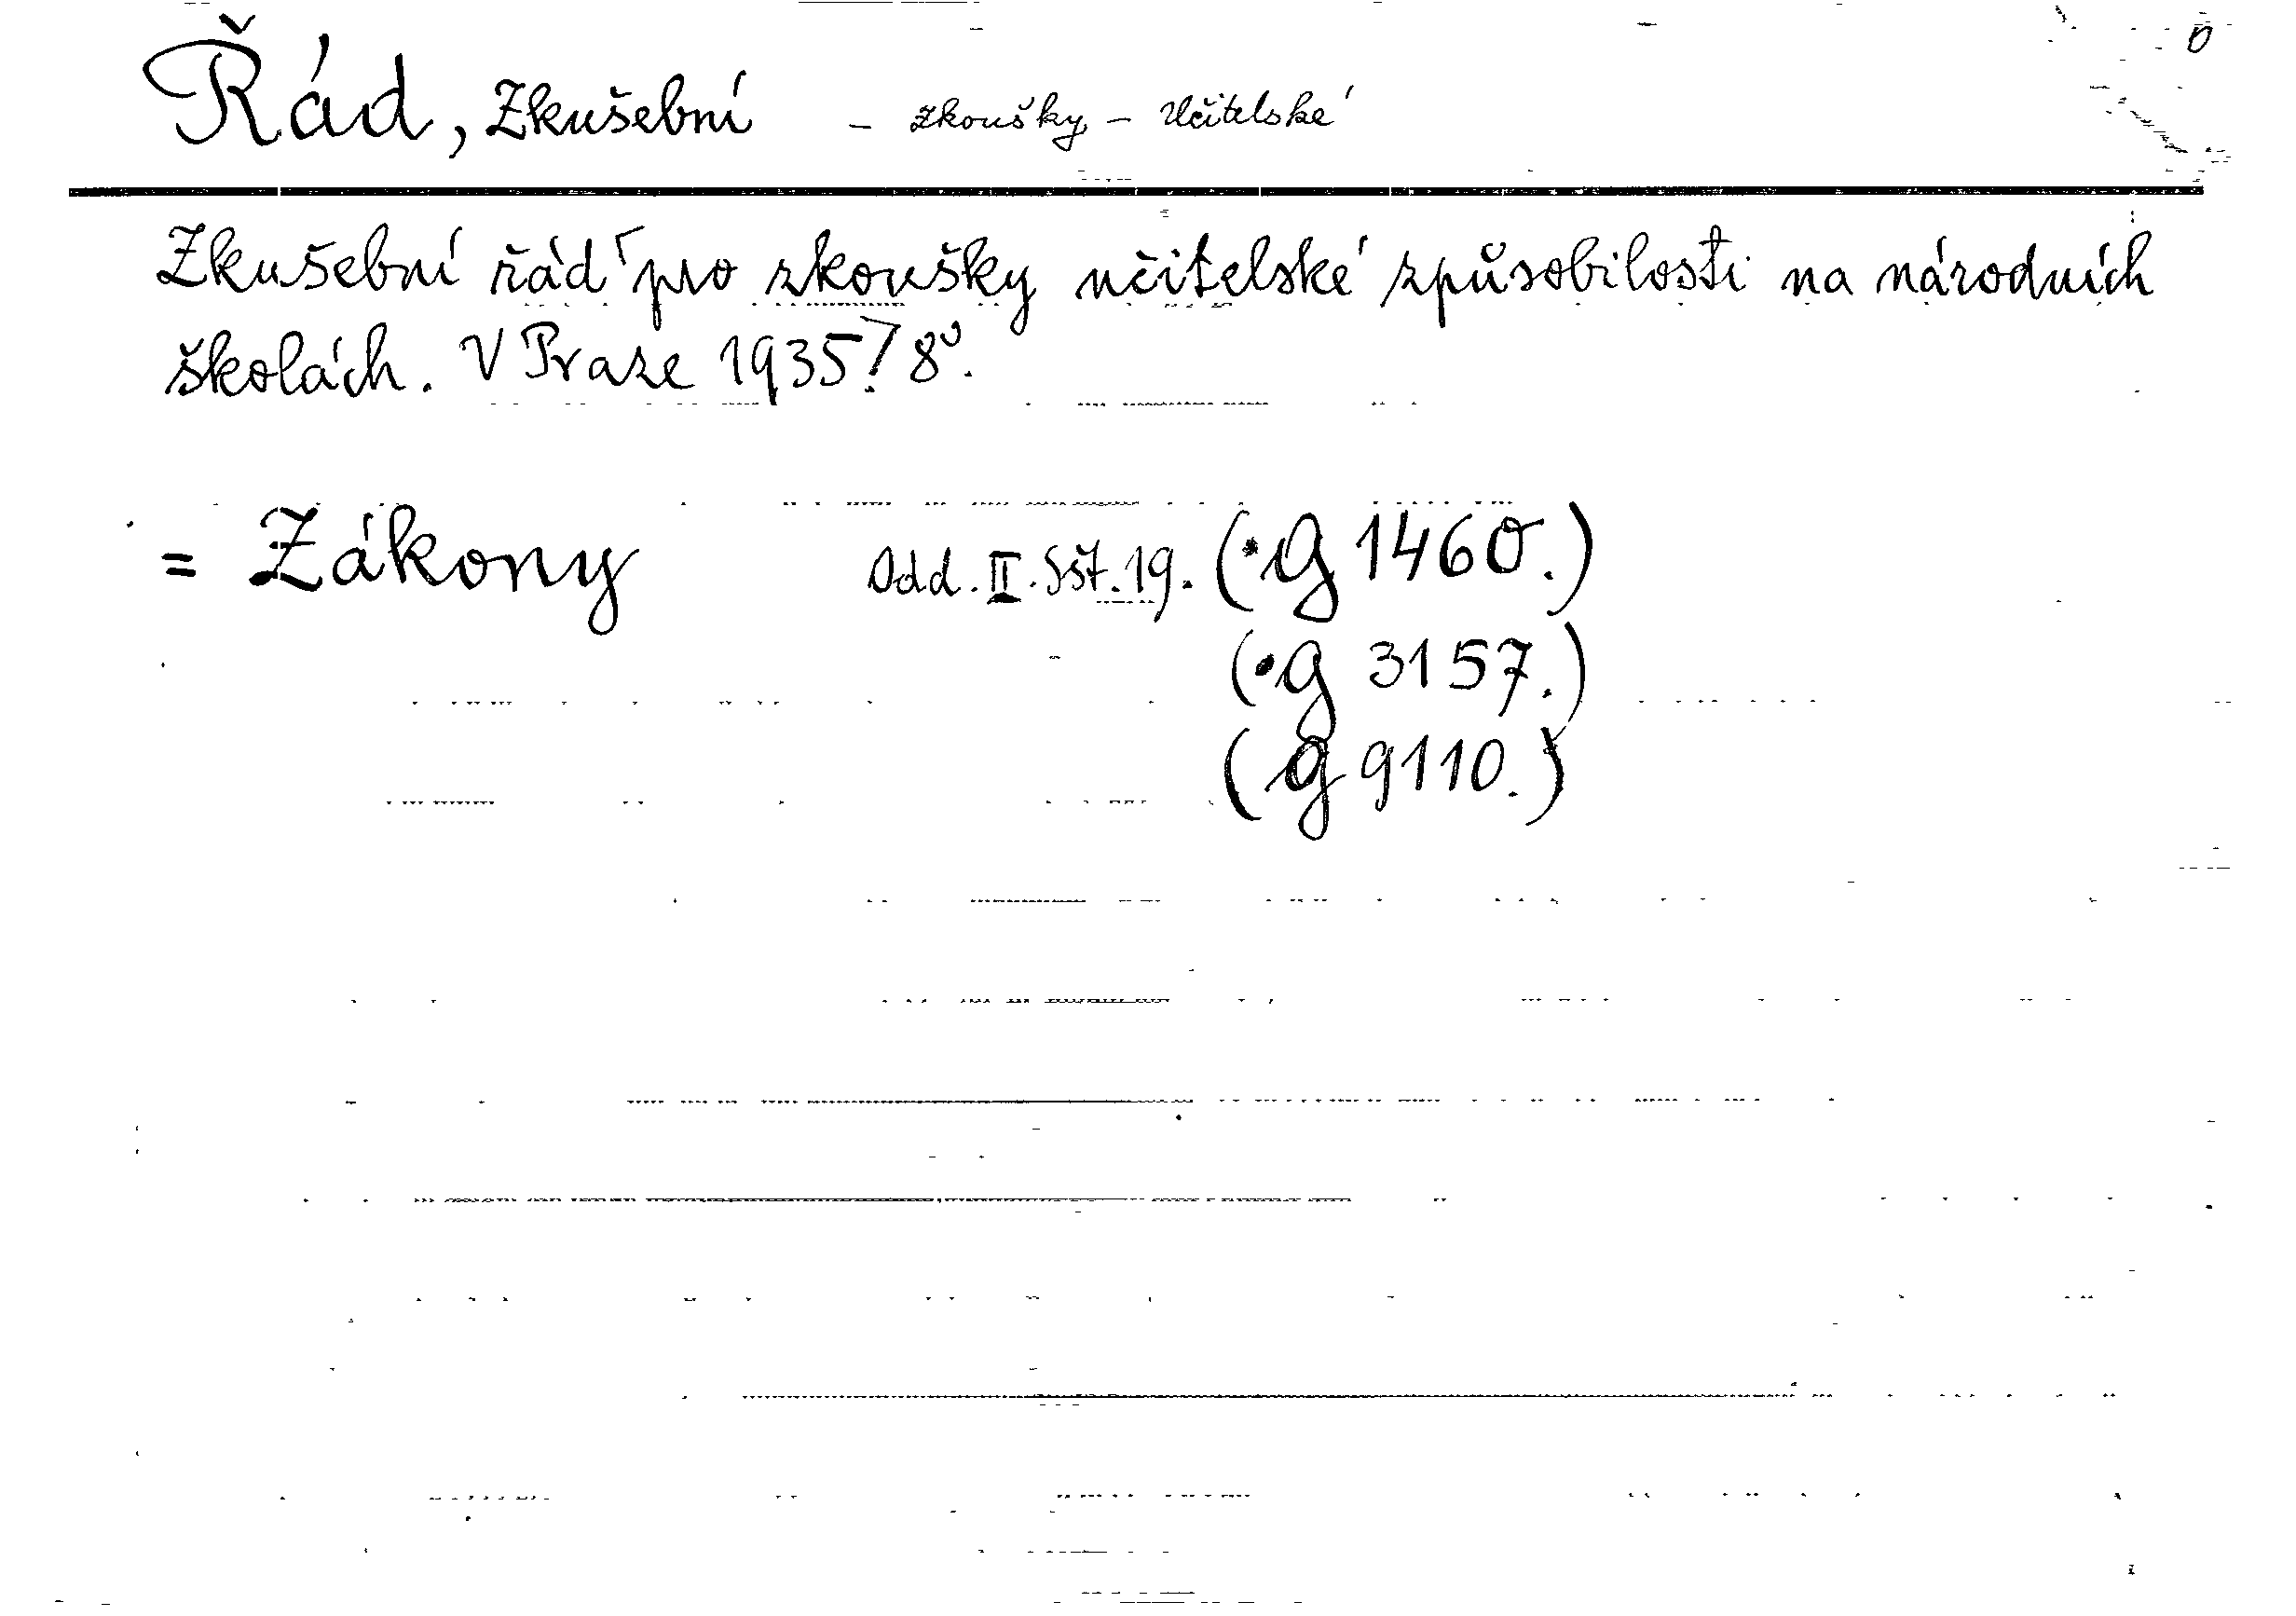 Řád, Zkušební – zkoušky – učitelské
Zkušební řád pro zkoušky učitelské způsobilosti na národních
školách. V Praze 1935. 8°.
= Zákony Odd. II. Sšt. 19. (•g 1460.)
(•g 3157.)
(g 9110.)